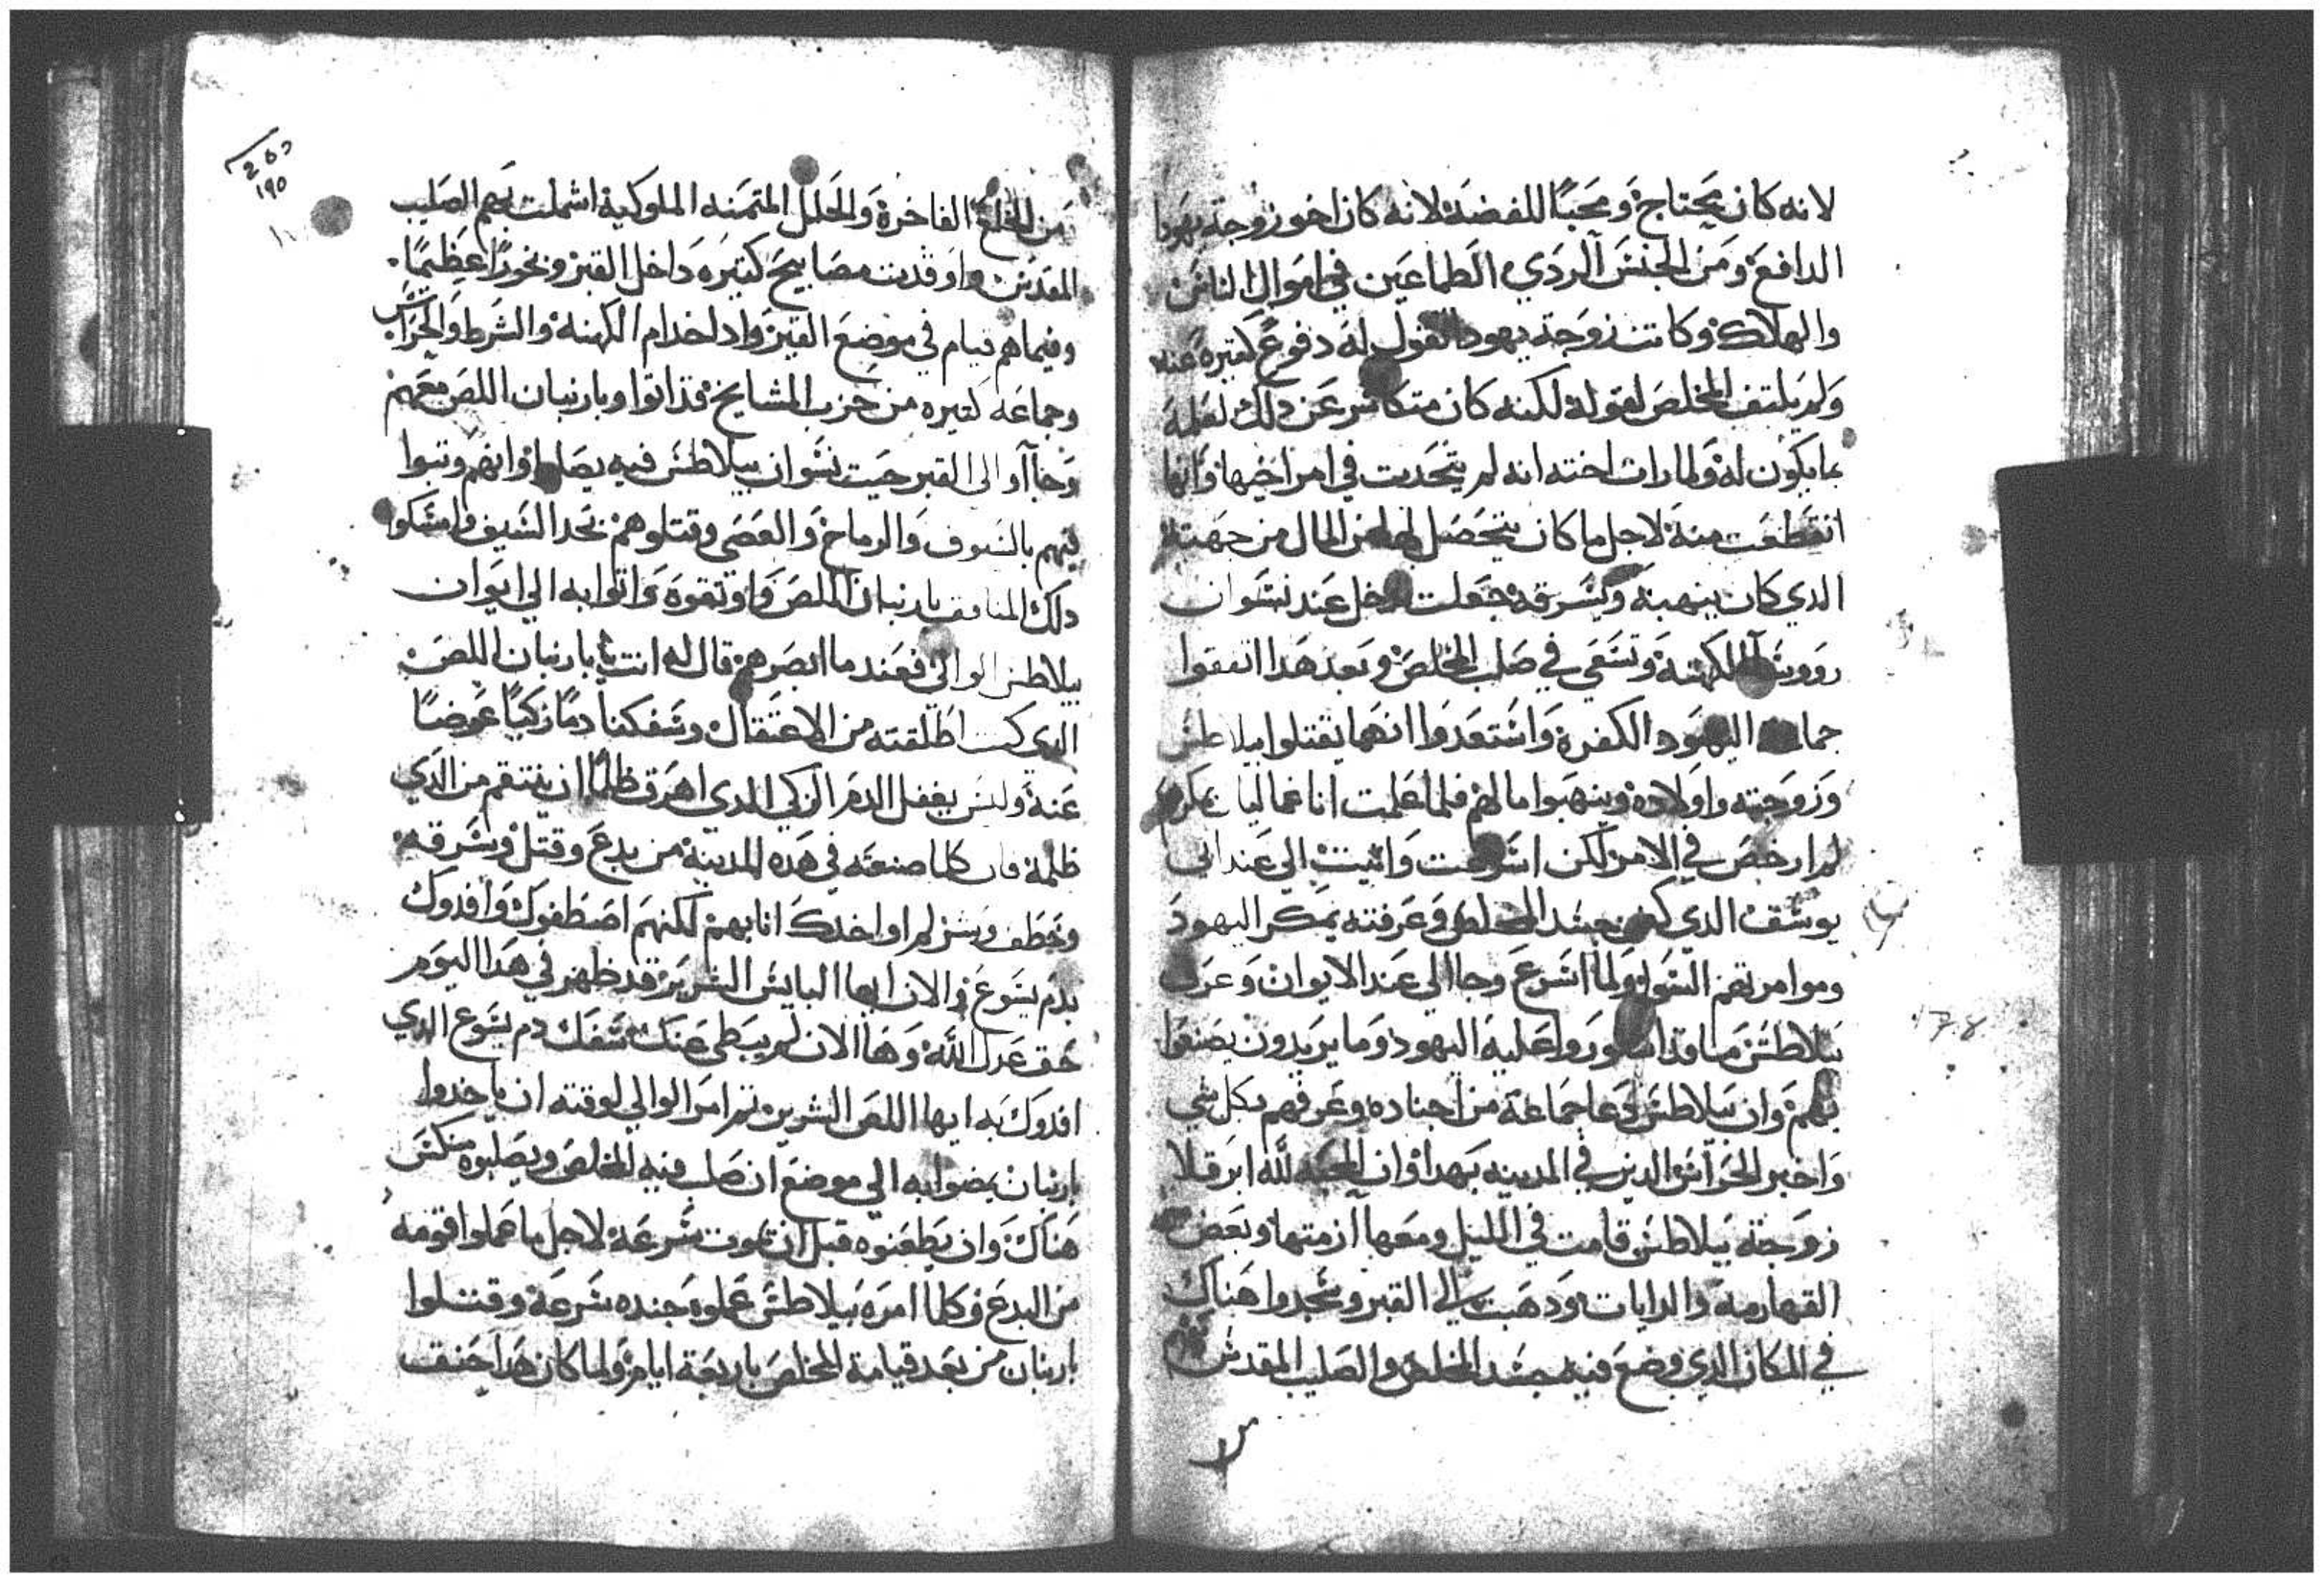 لانه كان يحتاج ومحبًا للفضة لانه كان اخو زوجة يهودا
الدافع ومن الجنس الردي الطماعين في اموال الناس
والهلاك وكانت زوجة يهودا تقول له دفوع كتيره عنه
ولم يلتفت المخلص لقولها لكنه كان متكاسر عن دلك لعلمه
بما يكون له ولما رات اخته انه لم يتحدت في امر اخيها وانها
انقطعت منه لاجل ما كان يتحصل لها من المال من جهته
الدي كان ينهبه ويسرقه جعلت تدخل عند نسوان
رووسا الكهنة وتسعي في صلب المخلص وبعد هدا اتفقوا
جماعة اليهود الكفرة واستعدوا انهم يقتلوا بيلاطس
وزوجته واولاده وينهبوا مالهم فلما علمت انا غماليا بمكرهم
لم ارخص في الامر لكن اسرعت واتيت الي عند ابي
يوسف الدي كفن جسد المخلص وعرفته بمكر اليهود
وموامرتهم السو ولما اسرع وجا الي عند الايوان وعرف
بيلاطس بما قد اشوروا عليه اليهود وما يريدون يصنعوا
بهم وان بيلاطس دعا جماعة من اجناده وعرفهم بكل شي
واخبر الحراس الدين في المدينه بهدا وان المحبه لله ابرقلا
زوجة بيلاطس قامت في الليل ومعها ازمتها وبعض
القهارمه والدايات ودهبت الي القبر وسجدوا هناك
في المكان الدي وضع فيه جسد المخلص والصليب المقدس
من
من الخلع الفاخرة والحلل المتمنه الملوكية اشملت بهم الصليب
المقدس واوقدت مصابيح كتيره داخل القبر وبخورًا عظيمًا
وفيما هم قيام في موضع القبر واد اخدام الكهنة والشرط والحراس
وجماعه كتيره من حزب المشايخ قد اتوا وبارنبان اللص معهم
وجااوا الي القبر حيت نسوان بيلاطس فيه يصلوا وانهم وتبوا
ليهم بالسيوف والرماح والعصي وقتلوهم بحد السيف وامسكوا
دلك المنافق بارنبان اللص واوتقوه واتوا به الي ايوان
بيلاطس الوالي فعند ما ابصرهم قال له انت يا بارنبان اللص
الدي كنت اطلقته من الاعتقال وسفكنا دمًا زكيًا عوضًا
عنه وليس يغفل الدم الزكي الدي اهرق ظلمًا ان ينتقم من الدي
ظلمه فان كلما صنعته في هده المدينة من بدع وقتل وسرقه
وخطف وشر لم اواخدك انا بهم لكنهم اصطفوك وافدوك
بدم يسوع والان ايها البايس الشرير قد ظهر في هدا اليوم
حق عدل الله وها الان لم يبطي عنك سفك دم يسوع الدي
افدوك به ايها اللص الشرير تم امر الوالي لوقته ان ياخدوا
بارنبان يمضوا به الي موضع ان صلب فيه المخلص ويصلبوه منكس
هناك وان يطعنوه قبل ان يموت سرعة لاجل ما عملوا قومه
من البدع وكلما امره بيلاطس عملوه جنده سرعة وقتلوا
بارنبان من بعد قيامة المخلص باربعة ايام ولما كان هدا حنق
190
178